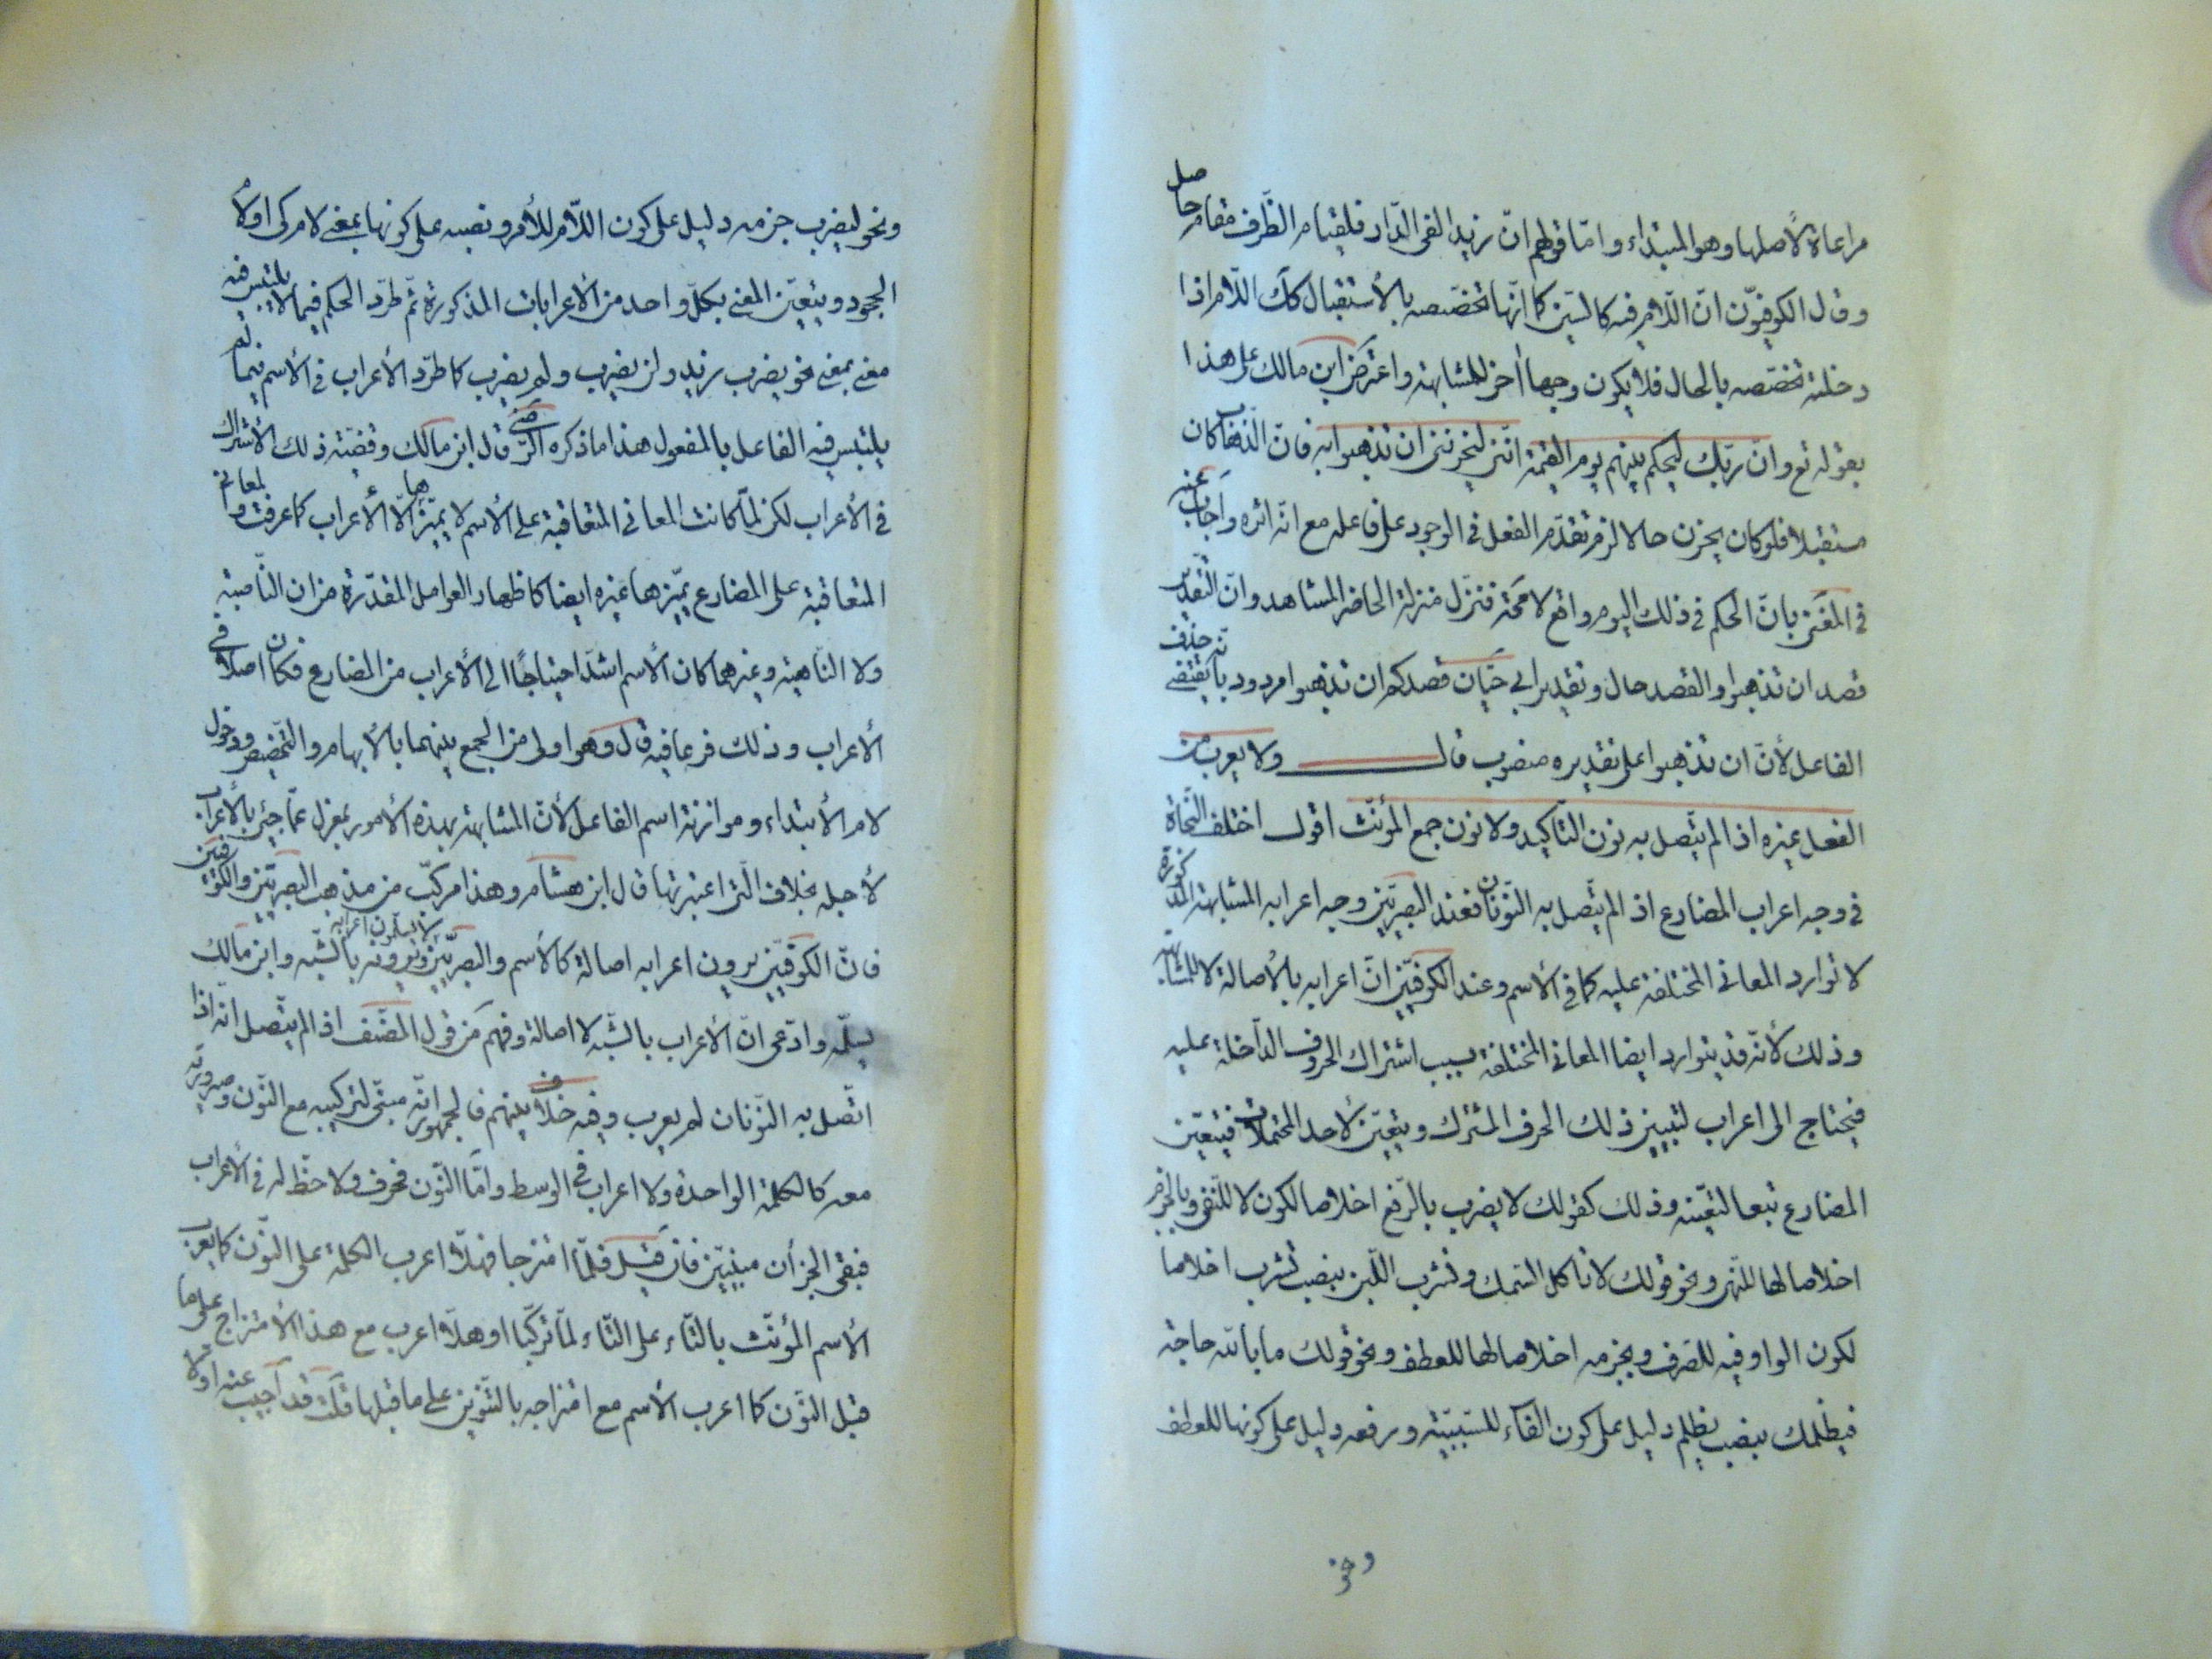 مراعاة لأصلها وهو المبتداء وامّا قولهم انّ زيدا لفى الدّار فلقيام الظّرف مقام حاصل
وقال الكوفيّون انّ اللّام فيه كالسّين كما انّها تخصّصه بالأستقبال كك اللّام اذا
دخلته تخصّصه بالحال فلا يكون وجها اخر للمشابهة واعترض ابن مالك على هذا
بقوله تع وانّ ربّك ليحكم بينهم يوم القيمة انّى ليحزننى ان تذهبوا به فانّ الذّهاب كان
مستقبلا فلو كان يحزن حالا لزم تقدّم الفعل فى الوجود على فاعله مع انّه اثره واجاب عنه
فى المغنى بانّ الحكم فى ذلك اليوم واقع لا محة فنزّل منزلة الحاضر المشاهد وانّ التّقدير
قصد ان تذهبوا والقصد حال وتقدير ابى حيّان قصدكم ان تذهبوا مردود بانّه يقتضى حذف
الفاعل لأنّ ان تذهبوا على تقديره منصوب قال ولا يعرب من
الفعل غيره اذا لم يتّصل به نون التّاكيد ولا نون جمع المؤنّث اقول اختلف النّحاة
فى وجه اعراب المضارع اذ الم يتّصل به النّونان فعند البصريّين وجه اعرابه المشابهة المذكورة
لا توارد المعانى المختلفة عليه كما فى الأسم وعند الكوفيّين انّ اعرابه بالأصالة لا للمشابهة
وذلك لأنّه قد يتوارد ايضا المعانى المختلفة بسبب اشتراك الحروف الدّاخلة عليه
فيحتاج الى اعراب لتبيين ذلك الحرف المشترك ويتعيّن لأحد المحتملات فيتعيّن
المضارع تبعا لتعيّنه وذلك كقولك لا يضرب بالرّفع اخلاصا لكون لا للنّفى وبالجزم
اخلاصا لها للنّهى ونحو قولك لا تاكل السّمك وتشرب اللّبن بنصب تشرب اخلاصا
لكون الواو فيه للصّرف وبجزمه اخلاصا لها للعطف ونحو قولك ما بالله حاجة
فيظلمك بنصب يظلم دليل على كون الفاء للسّببيّة ورفعه دليل على كونها للعطف
ونحو
ونحو ليضرب جزمه دليل على كون اللّام للأمر ونصبه على كونها بمعنى لام كى او لام
الجحود ويتعيّن المعنى بكلّ واحد من الأعرابات المذكورة ثمّ طرّد الحكم فيما لا يلتبس فيه
معنى بمعنى نحو يضرب زيد ولن يضرب ولم يضرب كما طرّد الأعراب فى الأسم فيما لم
يلتبس فيه الفاعل بالمفعول هذا ما ذكره الرّضى قال ابن مالك وقضيّة ذلك الأشتراك
فى الأعراب لكن لمّا كانت المعانى المتعاقبة على الأسم لا يميّزها الّا الأعراب كما عرفت والمعانى
المتعاقبة على المضارع يميّزها غيره ايضا كاظهار العوامل المقدّرة من ان النّاصبة
ولا النّاهية وغيرهما كان الأسم اشدّ احتياجًا الى الأعراب من المضارع فكان اصلا فى
الأعراب وذلك فرعا فيه قال وهو اولى من الجمع بينهما بالأبهام والتّخصيص ودخول
لام الأبتداء وموازنة اسم الفاعل لأنّ المشابهة بهذه الأمور بمعزل عمّا جئ بالأعراب
لأجله بخلاف الّتى اعتبرتها قال ابن هشام وهذا مركّب من مذهب البصريّين والكوفيّين
فانّ الكوفيّين يرون اعرابه اصالة كالأسم والبصريّين لا يسلّمون اعرابه ويرونه بالشّبه وابن مالك
يسلّمه وادّعى انّ الأعراب بالشّبه لا اصالة وفهم من قول المصنّف اذ الم يتّصل انّه اذا
اتّصل به النّونان لم يعرب وفيه خلاف بينهم فالجمهور انّه مبنىّ لتركيبه مع النّون وصيرورته
معه كالكلمة الواحدة ولا اعراب فى الوسط وامّا النّون فحرف ولا حظّ له فى الأعراب
فبقى الجزأن مبنيّين فان قيل فلمّا امتزجا فهلّا اعرب الكلمة على النّون كما يعرب
الأسم المؤنّث بالتّاء على التّاء لمّا تركّبا او هلّا اعرب مع هذا الأمتزاج على ما
قبل النّون كما اعرب الأسم مع امتزاجه بالتّنوين على ما قبلها قلت قد اجيب عنه اوّلا